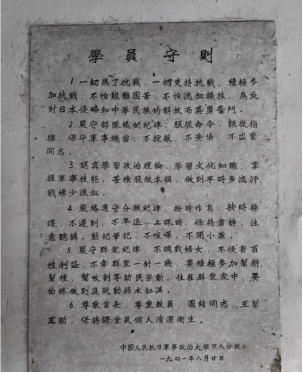 學員守則
1.一切為了抗戰，一切支持抗戰，積極參
加抗戰，不怕艱難困苦，不怕流血犧牲，為反
對日本侵略和中華民族的解放而英勇奮鬥。
2.嚴守部隊規的紀律，服從命令，聽從指
揮，保守軍事機密，不投敵，不妥協，不出賣
同志。
3.認真學習政治理論，學習文化知識，掌
握軍事技能，苦練殺敵本領，做到平時多流汗，
戰場少流血。
4.嚴格遵守分校紀律，按時作息，按時聽
課，不遲到，不早退，上課時，保持肅靜，注
意聽講，勤記筆記，不喧嘩，不開小差。
5.嚴守群眾紀律，不調戲婦女，不侵害百
姓利益，不拿群眾一針一線，要積極參加幫耕，
幫種，幫收割等助民勞動。住在群眾家中，要
始終做到庭院動掃水缸滿。
6.尊敬首長，尊重教員，團結同志，互幫
互助，保持課堂民個人清潔衛生。
中國人民抗日軍事政治大學第八分校
一九四一年八月廿日